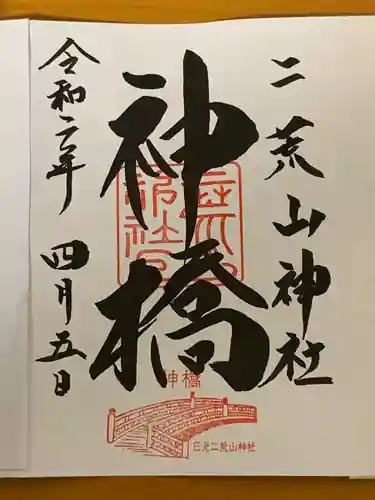 二荒山神社
神橋
令和二年
四月五日
神橋
日光二荒山神社